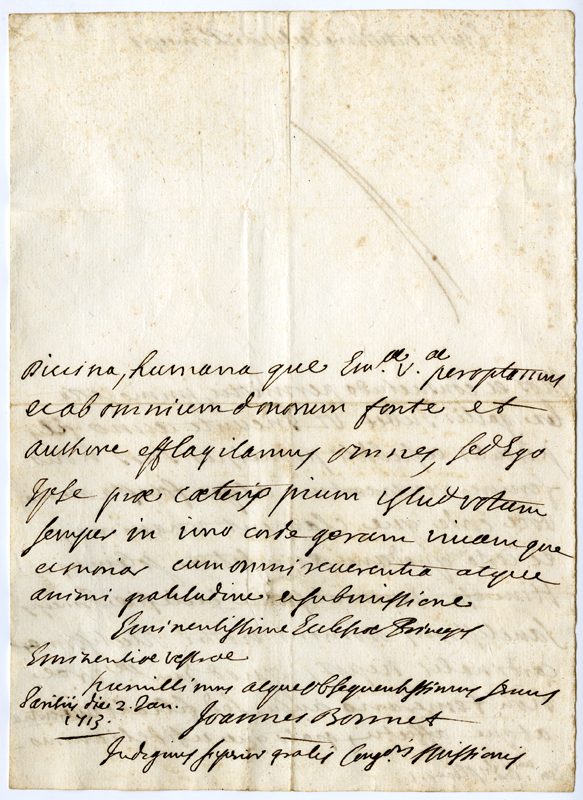 Divina, humana que Em.æ V.æ peroptamus
et ab omnium donorum fonte et
authore efflagitamus omnes, sed Ego
Ipse præ cæteris pium istud votum
semper in imo corde geram vivamque
et moriar cum omni reverentia atque
animi gratitudine et submissione
Eminentissime Ecclesiæ Princeps
Eminentiæ vestræ
humillimus atque Obsequentissimus servus
Parisiis die 2. Jan. 1713.
Joannes Bonnet
Indignus superior gralis Congõis Missionis